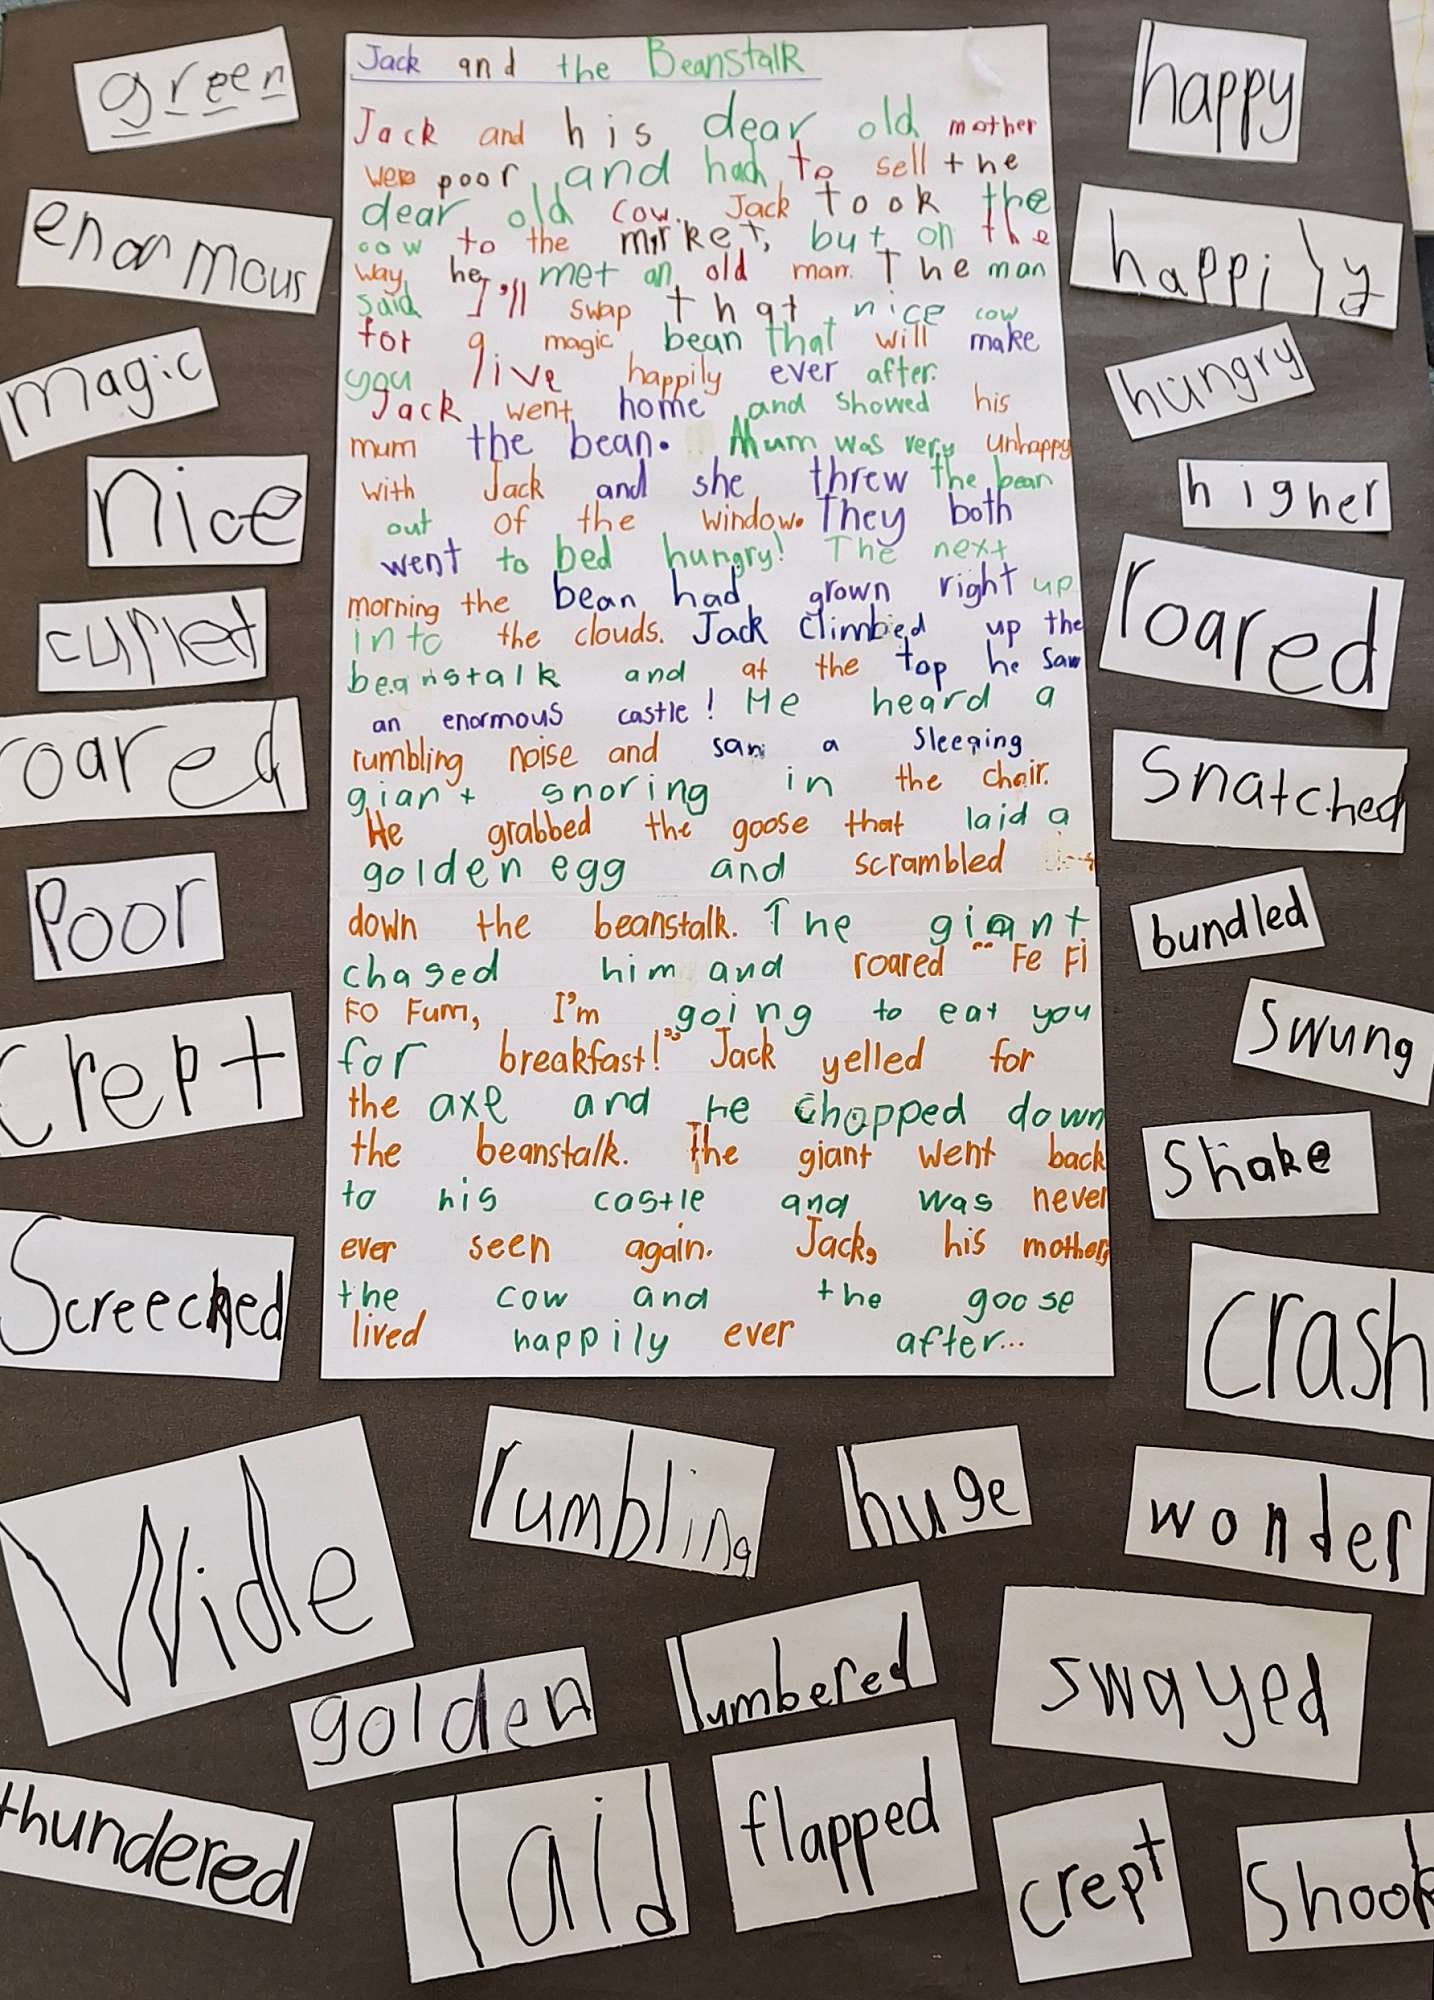 Jack and the Beanstalk
Jack and his dear old mother
were poor and had to sell the
dear old cow. Jack took the
cow to the market, but on the
way he met an old man. The man
said I'll swap that nice cow
for a magic bean that will make
you live happily ever after.
Jack went home and showed his
mum the bean. Mum was very unhappy
with Jack and she threw the bean
out of the window. They both
went to bed hungry! The next
morning the bean had grown right up
into the clouds. Jack climbed up the
beanstalk and at the top he saw
an enormous castle! He heard a
rumbling noise and saw a sleeping
giant snoring in the chair.
He grabbed the goose that laid a
golden egg and scrambled
down the beanstalk. The giant
chased him and roared "Fe Fi
Fo Fum, I'm going to eat you
for breakfast!" Jack yelled for
the axe and he chopped down
the beanstalk. The giant went back
to his castle and was never
ever seen again. Jack, his mother,
the cow and the goose
lived happily ever after...
green
enormous
magic
nice
curled
roared
Poor
crept
Screeched
happy
happily
hungry
higher
roared
snatched
bundled
swung
shake
crash
Wide
rumbling
huge
wonder
golden
lumbered
swayed
thundered
laid
flapped
crept
Shook